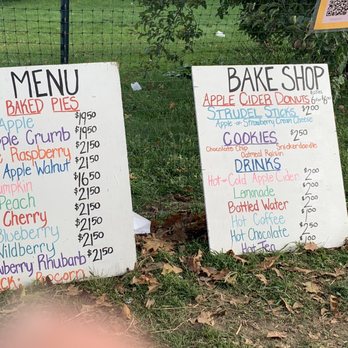 MENU
BAKED PIES
Apple $19.50
Apple Crumb $19.50
Raspberry $21.50
Apple Walnut $21.50
Pumpkin $16.50
Peach $21.50
Cherry $21.50
Blueberry $21.50
Wildberry $21.50
Rhubarb $21.50
BAKE SHOP
APPLE CIDER DONUTS
STRUDEL STICKS $2.00
Apple or Strawberry Cream Cheese
COOKIES $2.50
Chocolate Chip Snickerdoodle
Oatmeal Raisin
DRINKS
Hot + Cold Apple Cider
Lemonade
Bottled Water
Hot Coffee
Hot Chocolate
Hot Tea